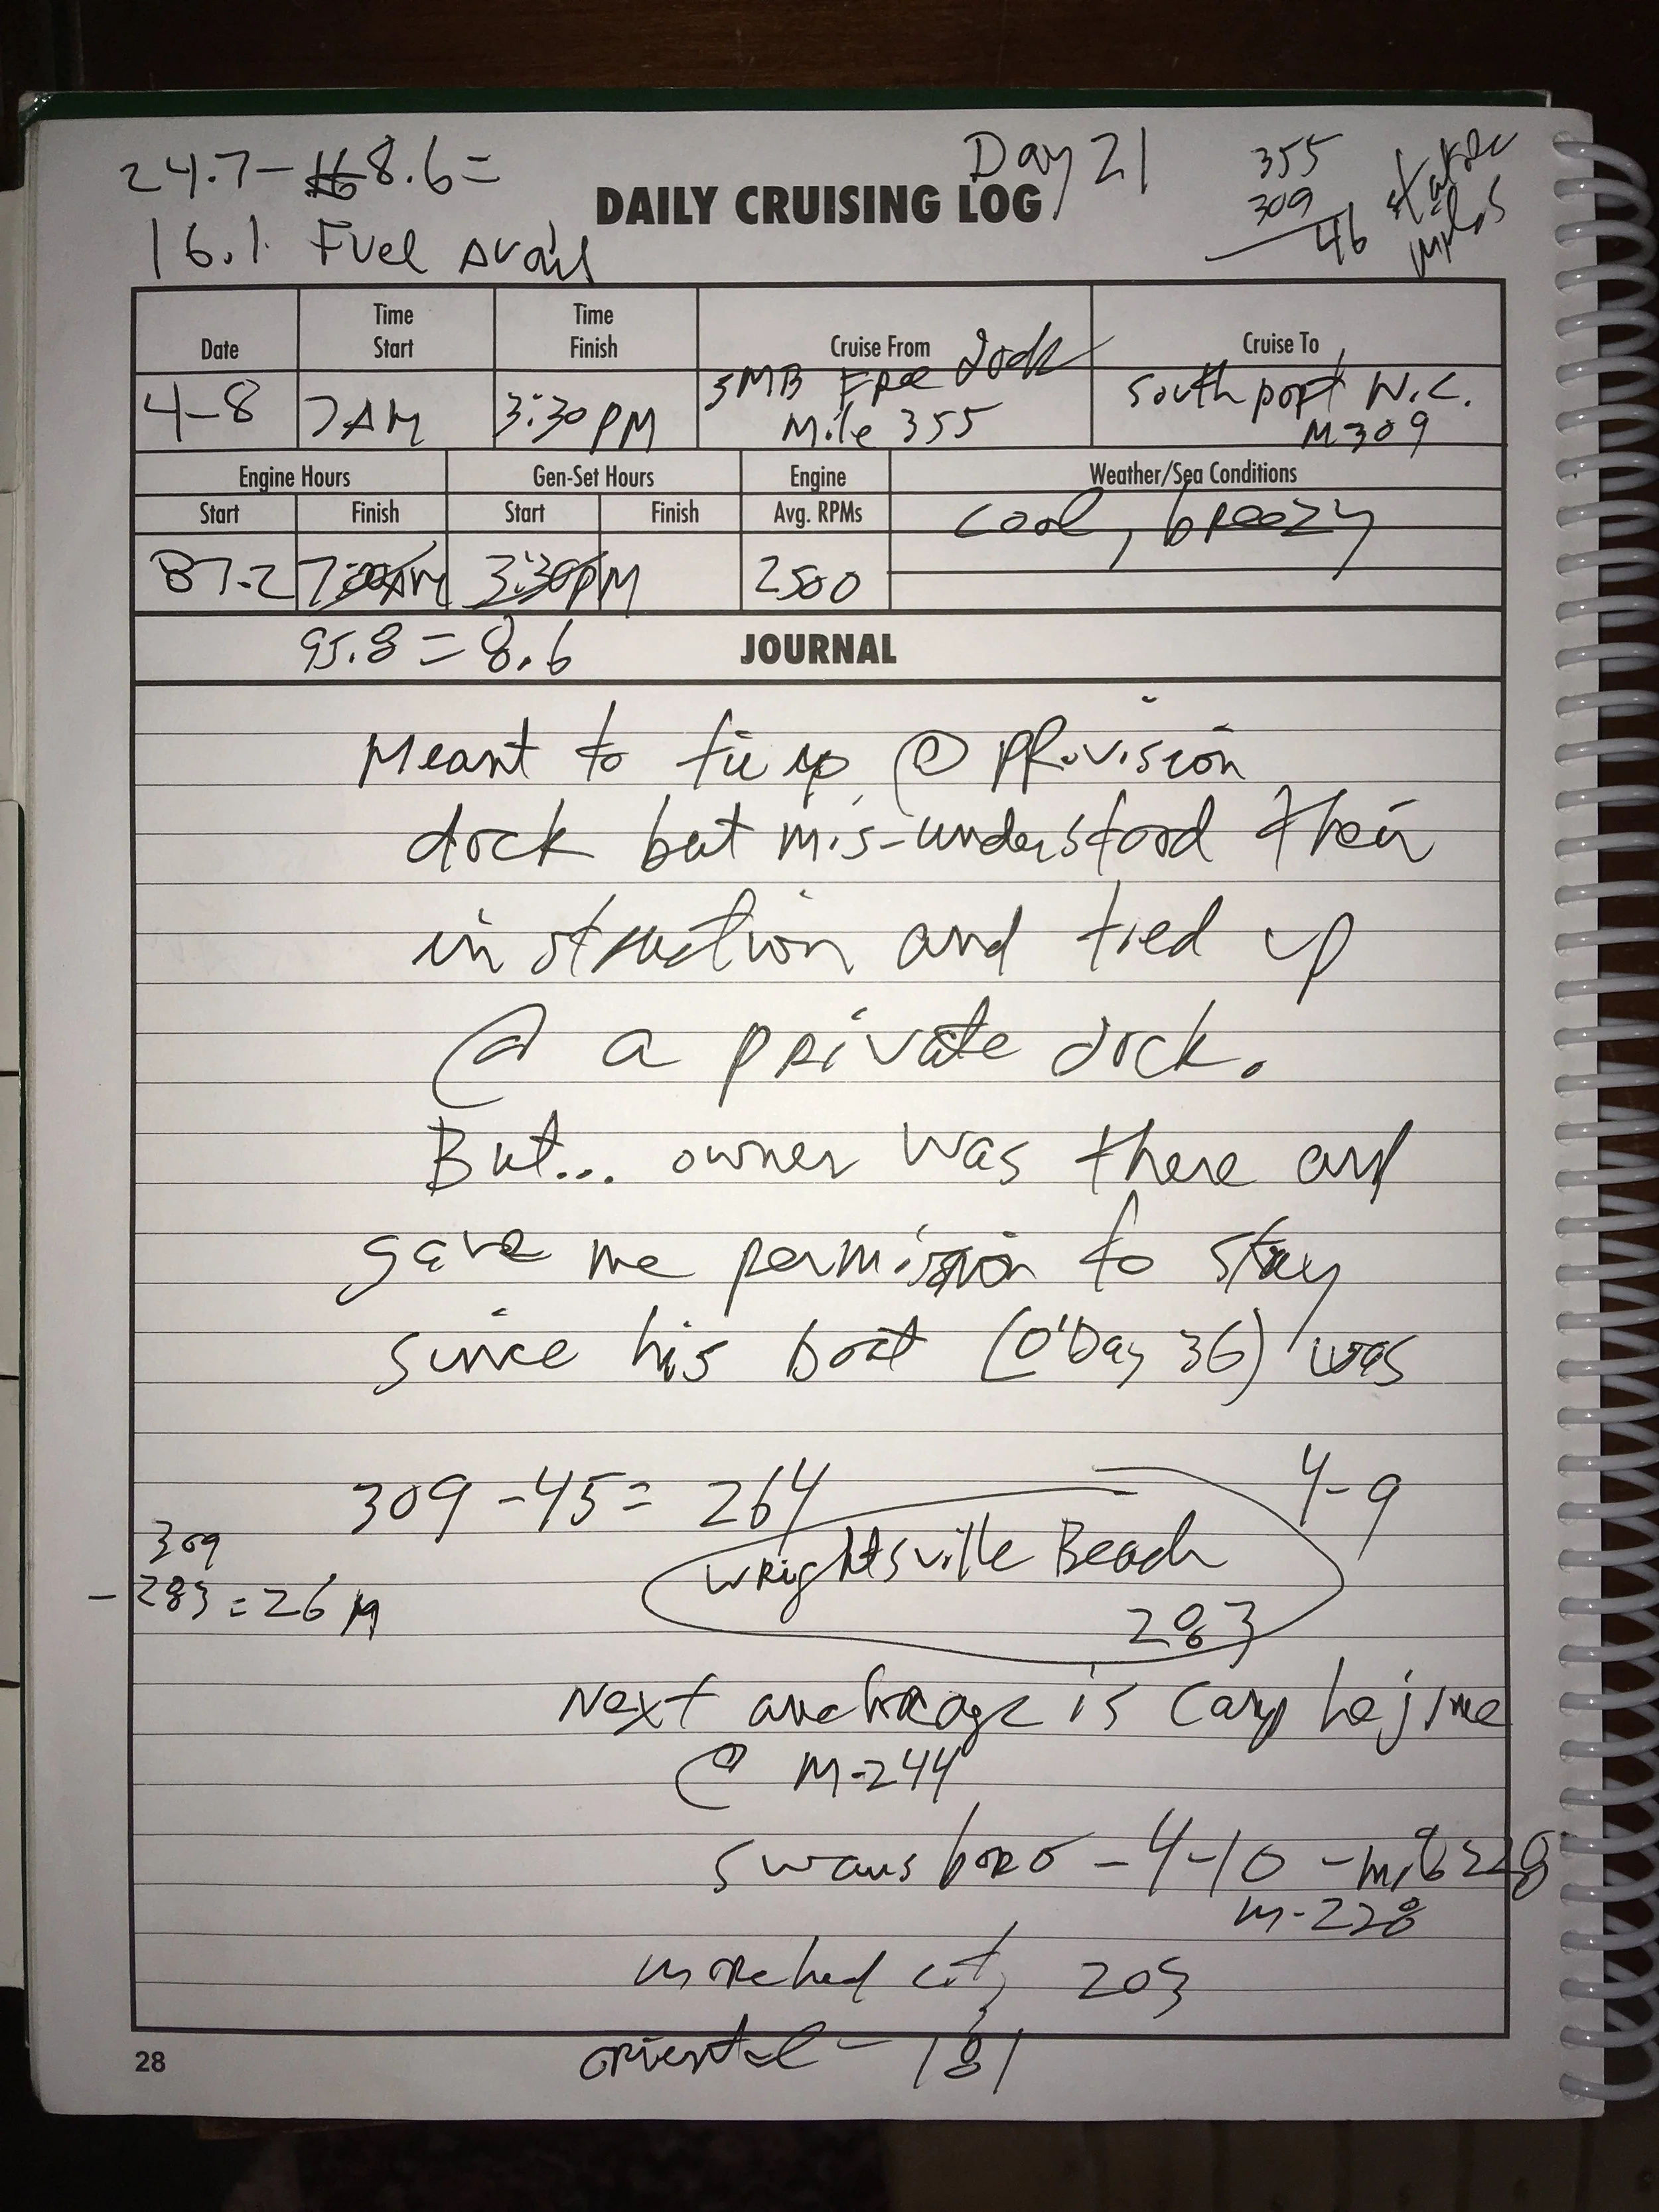 24.7 - 8.6 =
16.1 Fuel avail
Day 21
355
309
46
statute
miles
DAILY CRUISING LOG
Date
Time Start
Time Finish
Cruise From
Cruise To
4-8
7AM
3:30 PM
SMB Free dock
Mile 355
Southport N.C.
M309
Engine Hours
Gen-Set Hours
Engine
Weather/Sea Conditions
Start
Finish
Start
Finish
Avg. RPMs
cool, breezy
87.2
7:00AM
3:30PM
2500
95.8 = 8.6
JOURNAL
Meant to tie up @ Provision
dock but mis-understood their
instruction and tied up
@ a private dock.
But... owner was there and
gave me permission to stay
since his boat (O'Day 36) was
309 - 45 = 264
4-9
309
- 283 = 26 M
Wrightsville Beach
283
Next anchorage is Camp lejune
@ M-244
Swansboro - 4-10 - mile 228
M-228
Morehead city 203
oriental - 181
28